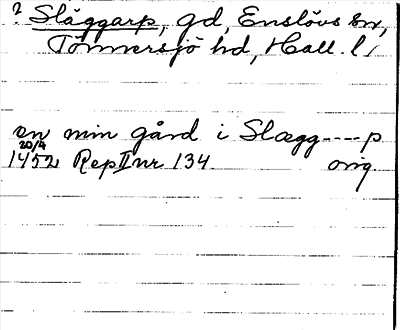 ? Släggarp, gd, Enslövs sn,
Tönnersjö hd, Hall. l.
en min gård i Slægg----p
20/4
1452 Rep II nr 134. orig.